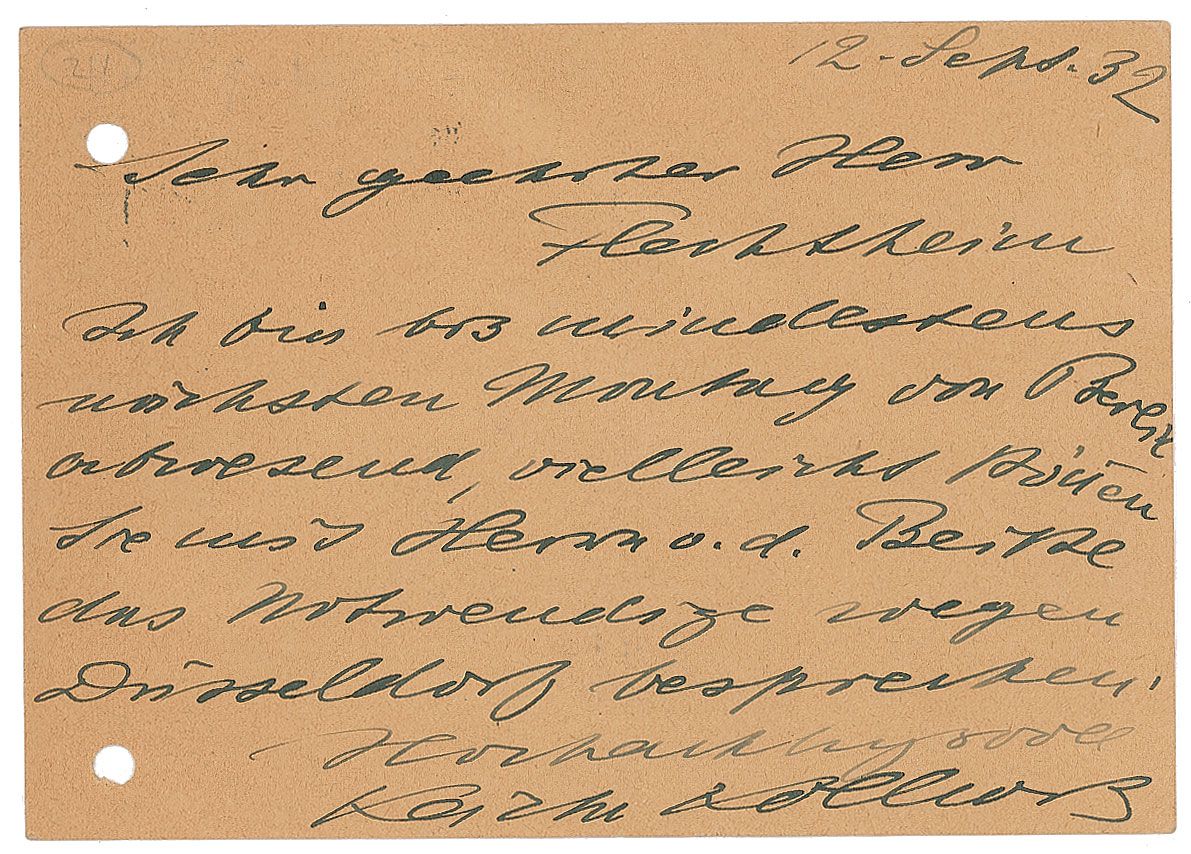 211
12. Sept. 32
Sehr geehrter Herr
Flechtheim
Ich bin bis mindestens
nächsten Montag von Berlin
abwesend, vielleicht können
Sie mit Herrn v. d.
das Notwendige wegen
Düsseldorf besprechen.
Hochachtungsvoll
Kollwitz